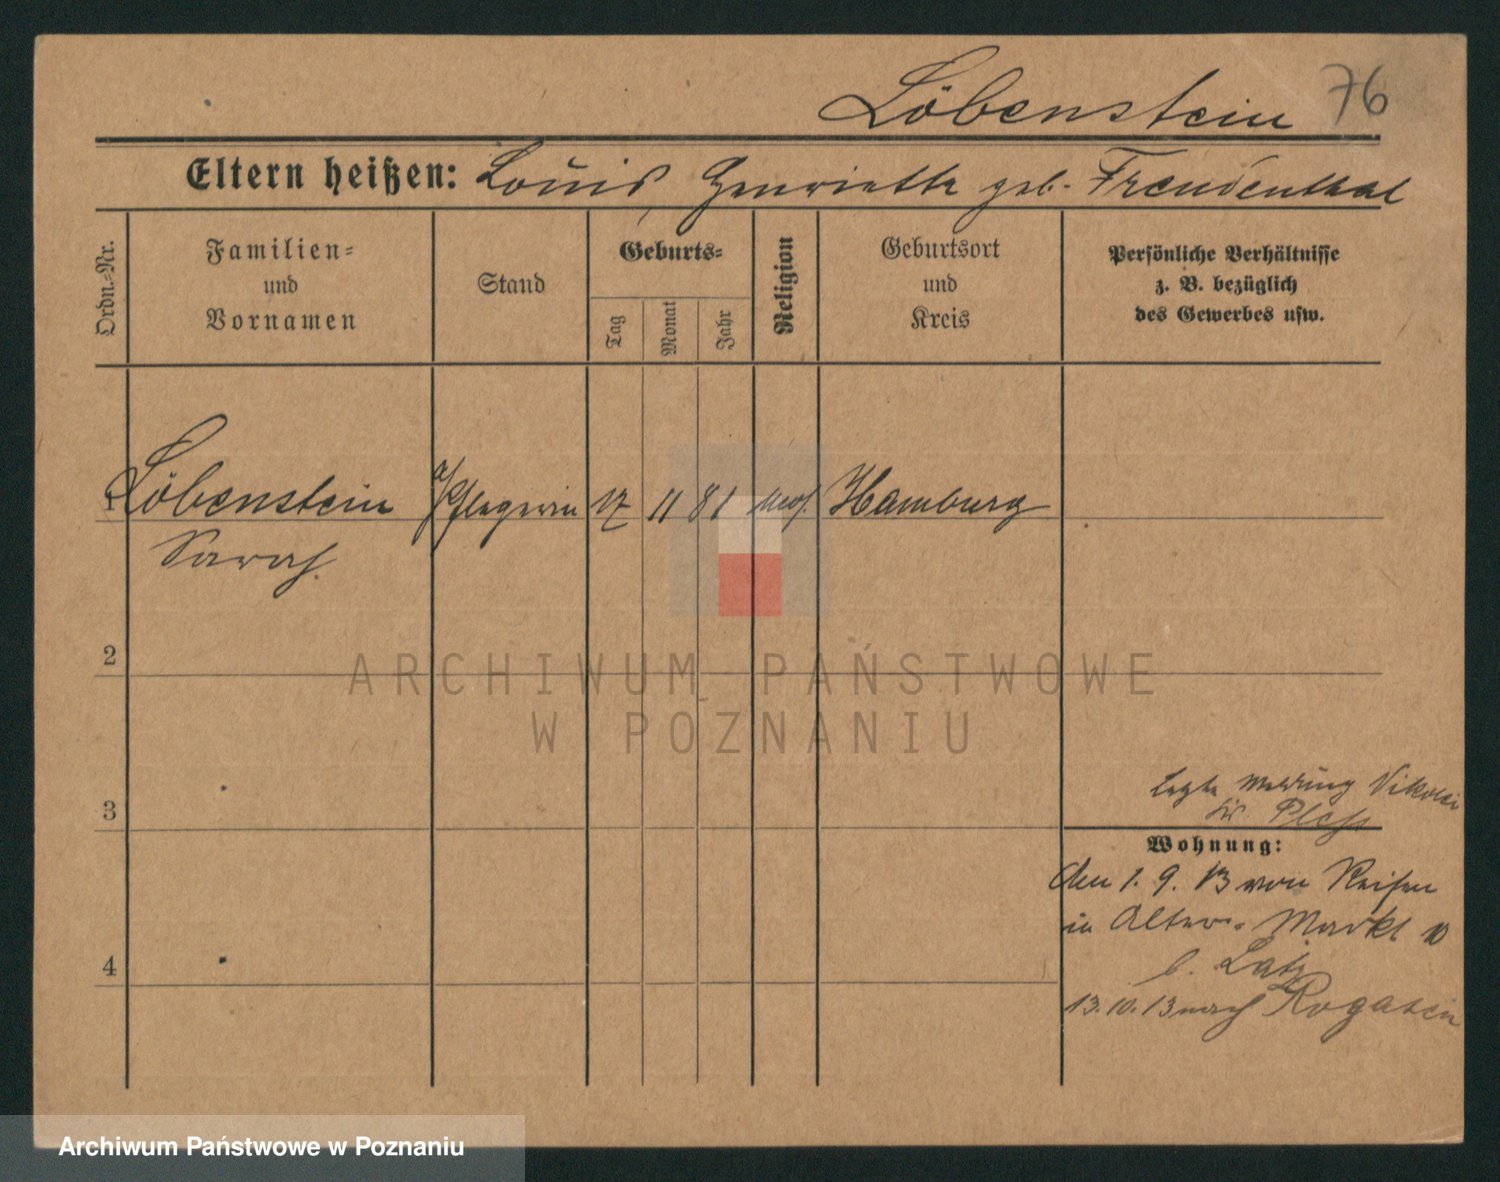 Löbenstein 76
Eltern heißen: Louis, Henriette geb. Freudenthal
Ordn.-Nr.
Familien-
und
Vornamen
Stand
Geburts-
Tag
Monat
Jahr
Religion
Geburtsort
und
Kreis
Persönliche Verhältnisse
z. B. bezüglich
des Gewerbes usw.
1 Löbenstein Pflegerin 17 11 81 mos. Hamburg
Sarah.
2
ARCHIWUM PAŃSTWOWE
W POZNANIU
3
letzte Meldung Nikolai
Kr. Pless
Wohnung:
den 1. 9. 13 von Reisen
in Alter-Markt 10
b. Latz
4
13. 10. 13 nach Rogasen
Archiwum Państwowe w Poznaniu